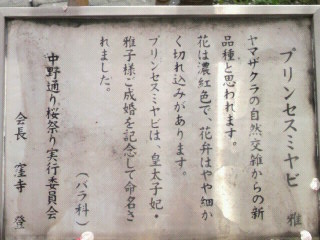 プリンセスミヤビ 雅
ヤマザクラの自然交雑からの新
品種と思われます。
花は濃紅色で、花弁はやや細か
く切れ込みがあります。
プリンセスミヤビは、皇太子妃・
雅子様ご成婚を記念して命名さ
れました。
(バラ科)
中野通り桜祭り実行委員会
会長 窪寺 登